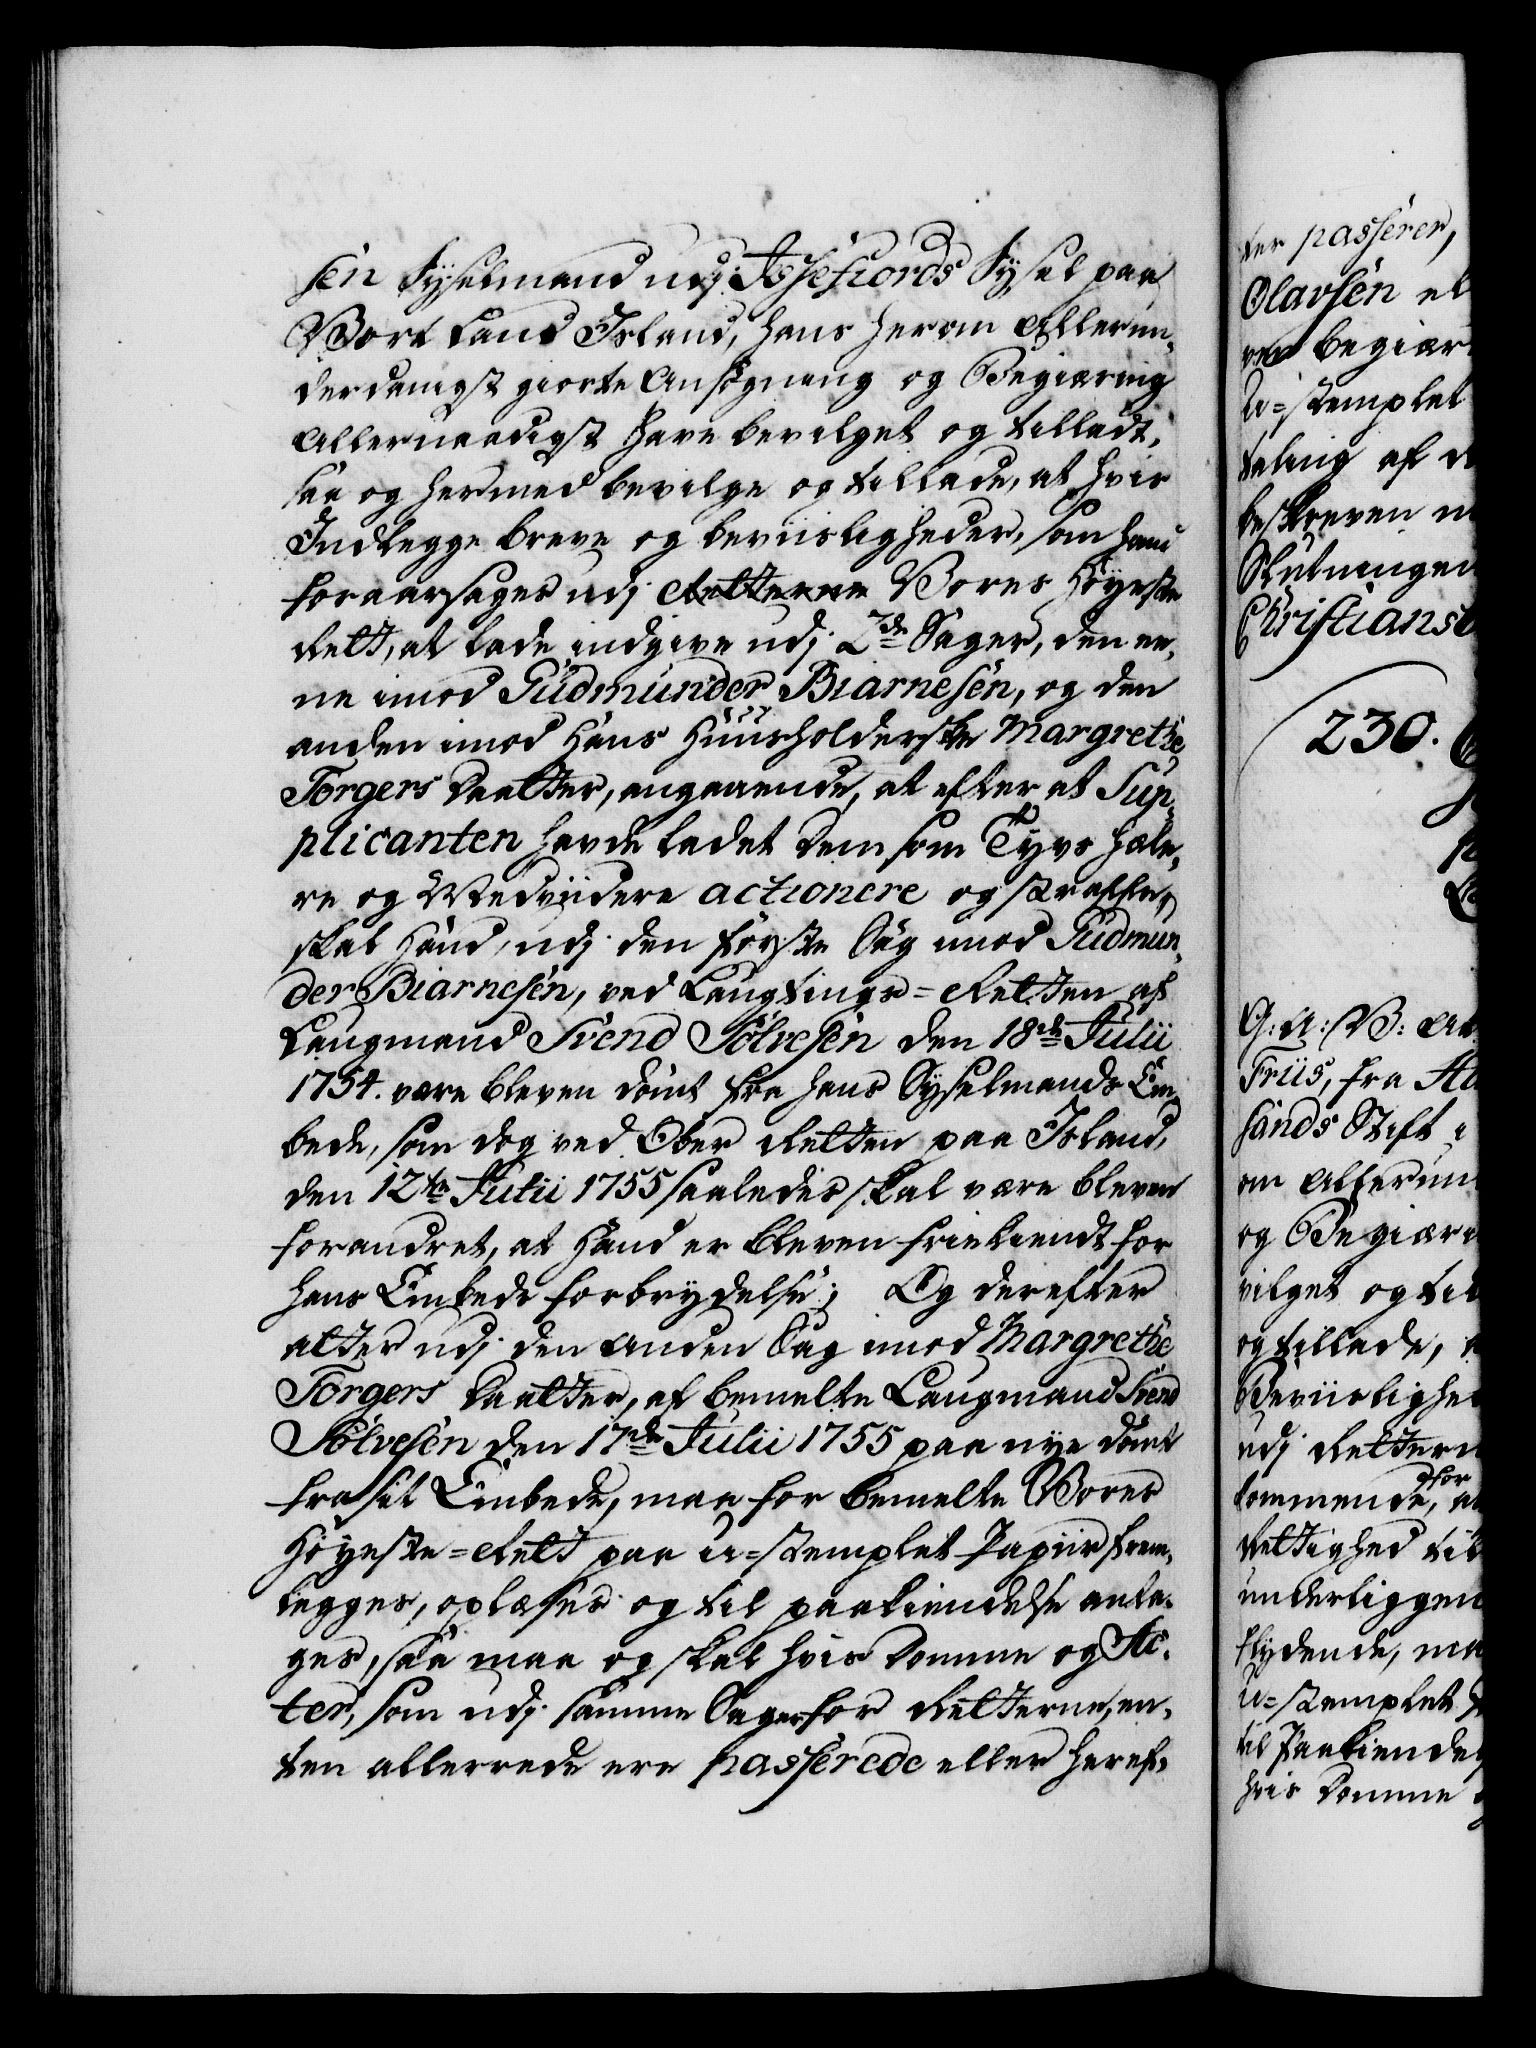 sen Sysselmand udj Issefiords Sysel paa
Vort Land Island, hans herom Allerun-
derdanigst giorte Ansøgning og Begiæring
Allernaadigst have bevilget og tilladt,
saa og hermed bevilge og tillade, at hvis
Indlegge breve og beviisligheder, som hand
foraarsages udj Retterne Vores Høyeste
Rett, at lade indgive udj 2de Sager, den ee-
ne imod Gudmunder Biarnesen, og den
anden imod Hans Huusholderske Margrethe
Torgers Daatter, angaaende, at efter at Sup-
plicanten havde ladet dem som Tyvs Hæle-
re og Medviidere actionere og straffe,
skal Hand, udj den første Sag imod Gudmun-
der Biarnesen, ved Laugtings-Retten af
Laugmand Svend Sølvesen den 18de Julii
1754. være bleven dømt fra hans Sysselmands Em-
bede, som dog ved Ober Retten paa Island,
den 12te Julii 1755 saaledes skal være bleven
forandret, at Hand er bleven frikiendt for
hans Embeds forbrydelse; Og derefter
atter udj den Anden Sag imod Margrethe
Torgers Daatter, af bemelte Laugmand Svend
Sølvesen den 17de Julii 1755 paa nye dømt
fra sit Embede, maa for bemelte Vores
Høyeste-Rett paa u-stemplet Papiir frem-
legges, oplæses og til paakiendelse anta-
ges, saa maa og skal hvis Domme og Ac-
ter, som udj samme Sager for Retterne, en-
ten allerrede ere passerede eller heref-
ter passerer,
Olavsen el
begiær
u-stemplet
taling af
beskreven
Slutningen
Christiansb
230.
G: A: V: At
Friis, fra
sands Stift i
om Allerun
og Begiær
vilget og til
og tillade,
Beviislighed
udj Rettern
kommende, for
Rettighed til
underliggen
flydende, maa
u-stemplet
til Paakiendel
hvis Domme